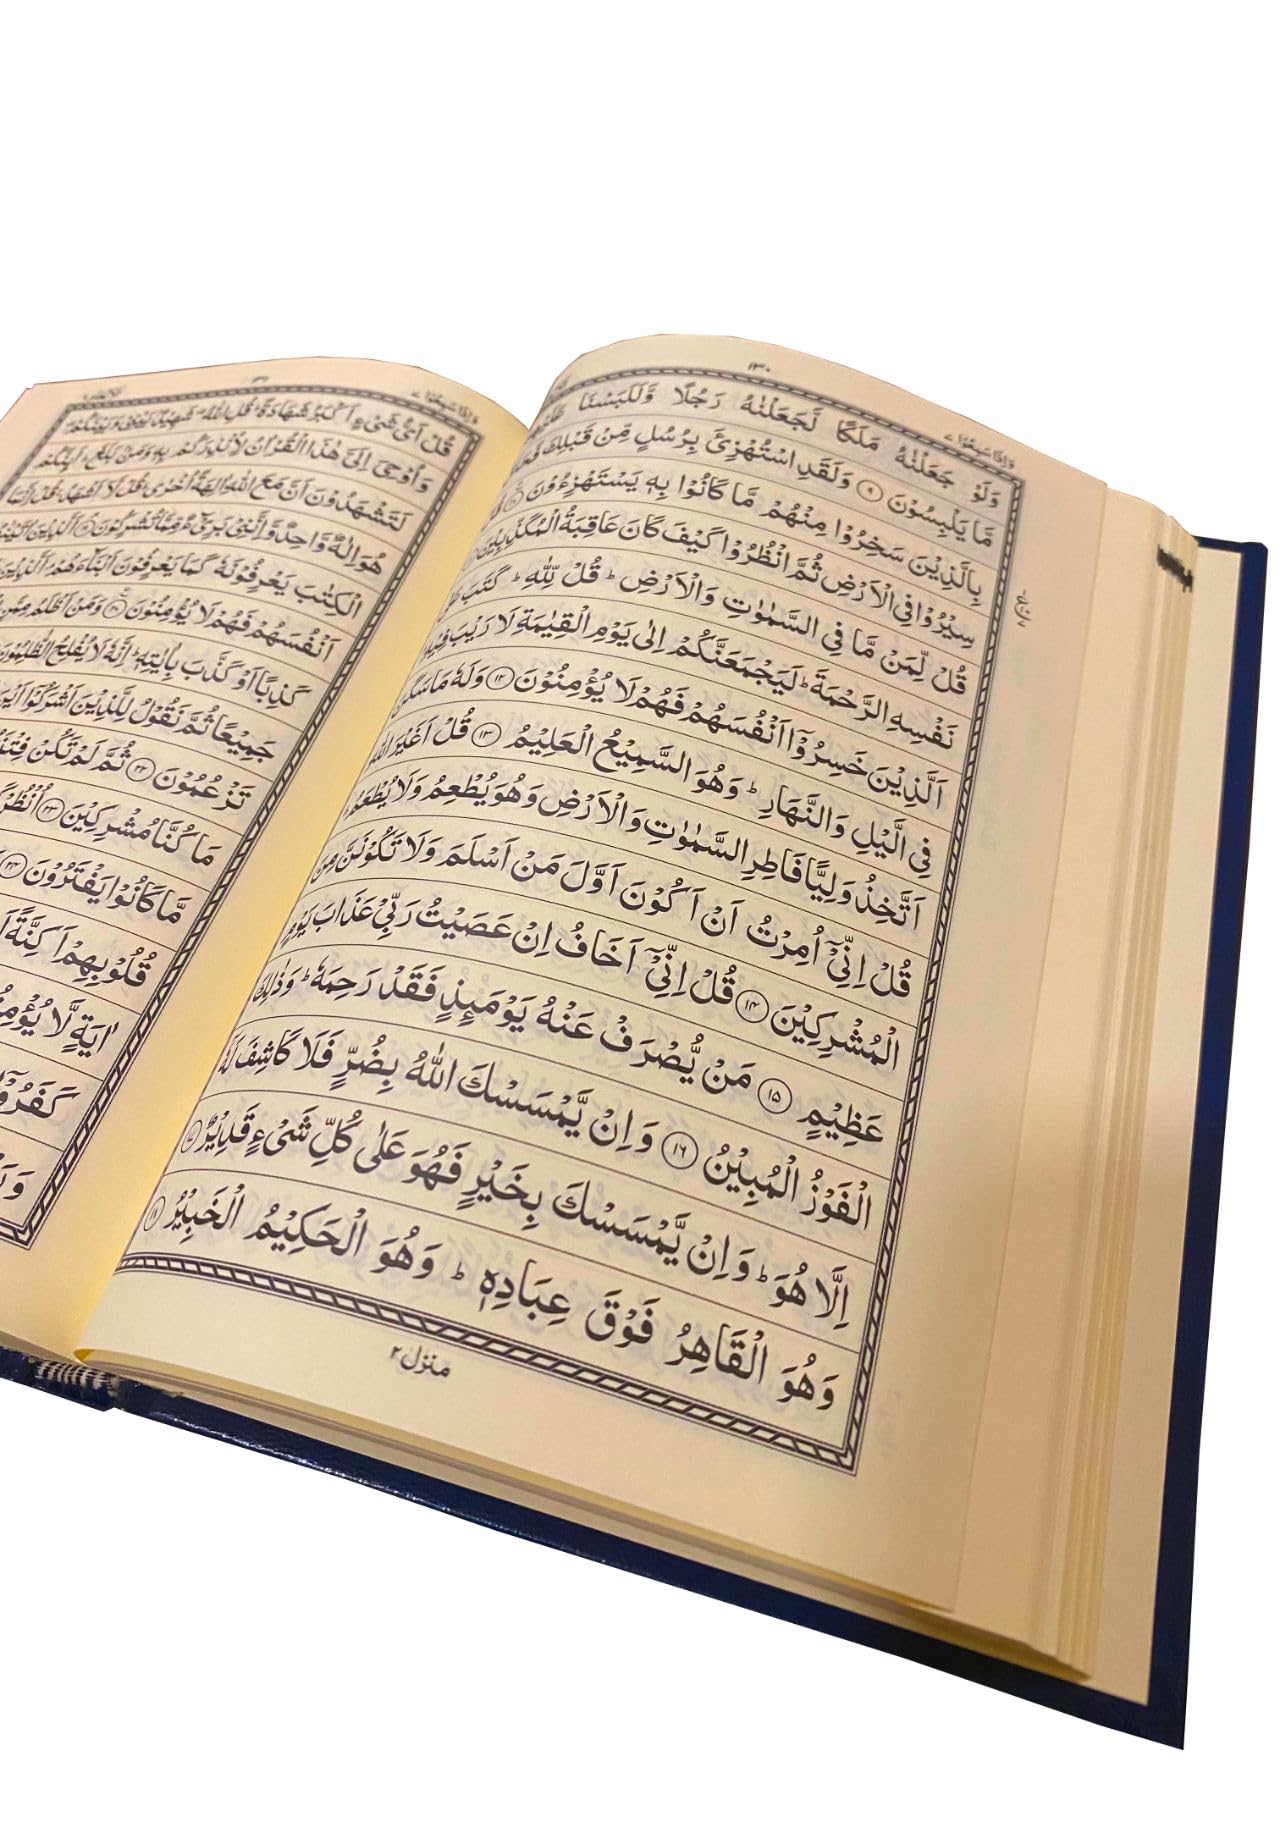 وَاِذَا سَمِعُوْا ۷
۱۳۰
وَلَوْ جَعَلْنٰهُ مَلَكًا لَّجَعَلْنٰهُ رَجُلًا وَّلَلَبَسْنَا
مَّا يَلْبِسُوْنَ ۹ وَلَقَدِ اسْتُهْزِئَ بِرُسُلٍ مِّنْ قَبْلِكَ
بِالَّذِيْنَ سَخِرُوْا مِنْهُمْ مَّا كَانُوْا بِهٖ يَسْتَهْزِءُوْنَ ۱۰
سِيْرُوْا فِى الْاَرْضِ ثُمَّ انْظُرُوْا كَيْفَ كَانَ عَاقِبَةُ الْمُكَذِّبِيْنَ
قُلْ لِّمَنْ مَّا فِى السَّمٰوٰتِ وَالْاَرْضِ ؕ قُلْ لِّلّٰهِ ؕ كَتَبَ
نَفْسِهِ الرَّحْمَةَ ؕ لَيَجْمَعَنَّكُمْ اِلٰى يَوْمِ الْقِيٰمَةِ لَا رَيْبَ فِيْهِ
اَلَّذِيْنَ خَسِرُوْۤا اَنْفُسَهُمْ فَهُمْ لَا يُؤْمِنُوْنَ ۱۲ وَلَهٗ مَا سَكَنَ
فِى الَّيْلِ وَالنَّهَارِ ؕ وَهُوَ السَّمِيْعُ الْعَلِيْمُ ۱۳ قُلْ اَغَيْرَ اللّٰهِ
اَتَّخِذُ وَلِيًّا فَاطِرِ السَّمٰوٰتِ وَالْاَرْضِ وَهُوَ يُطْعِمُ وَلَا يُطْعَمُ
قُلْ اِنِّىْۤ اُمِرْتُ اَنْ اَكُوْنَ اَوَّلَ مَنْ اَسْلَمَ وَلَا تَكُوْنَنَّ مِنَ
الْمُشْرِكِيْنَ ۱۴ قُلْ اِنِّىْۤ اَخَافُ اِنْ عَصَيْتُ رَبِّىْ عَذَابَ يَوْمٍ
عَظِيْمٍ ۱۵ مَنْ يُّصْرَفْ عَنْهُ يَوْمَئِذٍ فَقَدْ رَحِمَهٗ ؕ وَذٰلِكَ
الْفَوْزُ الْمُبِيْنُ ۱۶ وَاِنْ يَّمْسَسْكَ اللّٰهُ بِضُرٍّ فَلَا كَاشِفَ لَهٗۤ
اِلَّا هُوَ ؕ وَاِنْ يَّمْسَسْكَ بِخَيْرٍ فَهُوَ عَلٰى كُلِّ شَىْءٍ قَدِيْرٌ ۱۷
وَهُوَ الْقَاهِرُ فَوْقَ عِبَادِهٖ ؕ وَهُوَ الْحَكِيْمُ الْخَبِيْرُ ۱۸
منزل ۲
وَاِذَا سَمِعُوْا ۷
قُلْ اَىُّ شَىْءٍ اَكْبَرُ شَهَادَةً ؕ قُلِ اللّٰهُ ۙ شَهِيْدٌۢ بَيْنِىْ وَبَيْنَكُمْ
وَاُوْحِىَ اِلَىَّ هٰذَا الْقُرْاٰنُ لِاُنْذِرَكُمْ بِهٖ وَمَنْۢ بَلَغَ ؕ اَئِنَّكُمْ
لَتَشْهَدُوْنَ اَنَّ مَعَ اللّٰهِ اٰلِهَةً اُخْرٰى ؕ قُلْ لَّاۤ اَشْهَدُ ۚ قُلْ اِنَّمَا
هُوَ اِلٰهٌ وَّاحِدٌ وَّاِنَّنِىْ بَرِىْٓءٌ مِّمَّا تُشْرِكُوْنَ ۱۹ اَلَّذِيْنَ اٰتَيْنٰهُمُ
الْكِتٰبَ يَعْرِفُوْنَهٗ كَمَا يَعْرِفُوْنَ اَبْنَآءَهُمْ ۘ اَلَّذِيْنَ
اَنْفُسَهُمْ فَهُمْ لَا يُؤْمِنُوْنَ ۲۰ وَمَنْ اَظْلَمُ مِمَّنِ
كَذِبًا اَوْ كَذَّبَ بِاٰيٰتِهٖ ؕ اِنَّهٗ لَا يُفْلِحُ الظّٰلِمُوْنَ
جَمِيْعًا ثُمَّ نَقُوْلُ لِلَّذِيْنَ اَشْرَكُوْۤا اَيْنَ
تَزْعُمُوْنَ ۲۲ ثُمَّ لَمْ تَكُنْ
مَا كُنَّا مُشْرِكِيْنَ ۲۳ اُنْظُرْ
مَّا كَانُوْا يَفْتَرُوْنَ ۲۴
قُلُوْبِهِمْ اَكِنَّةً
اٰيَةٍ لَّا